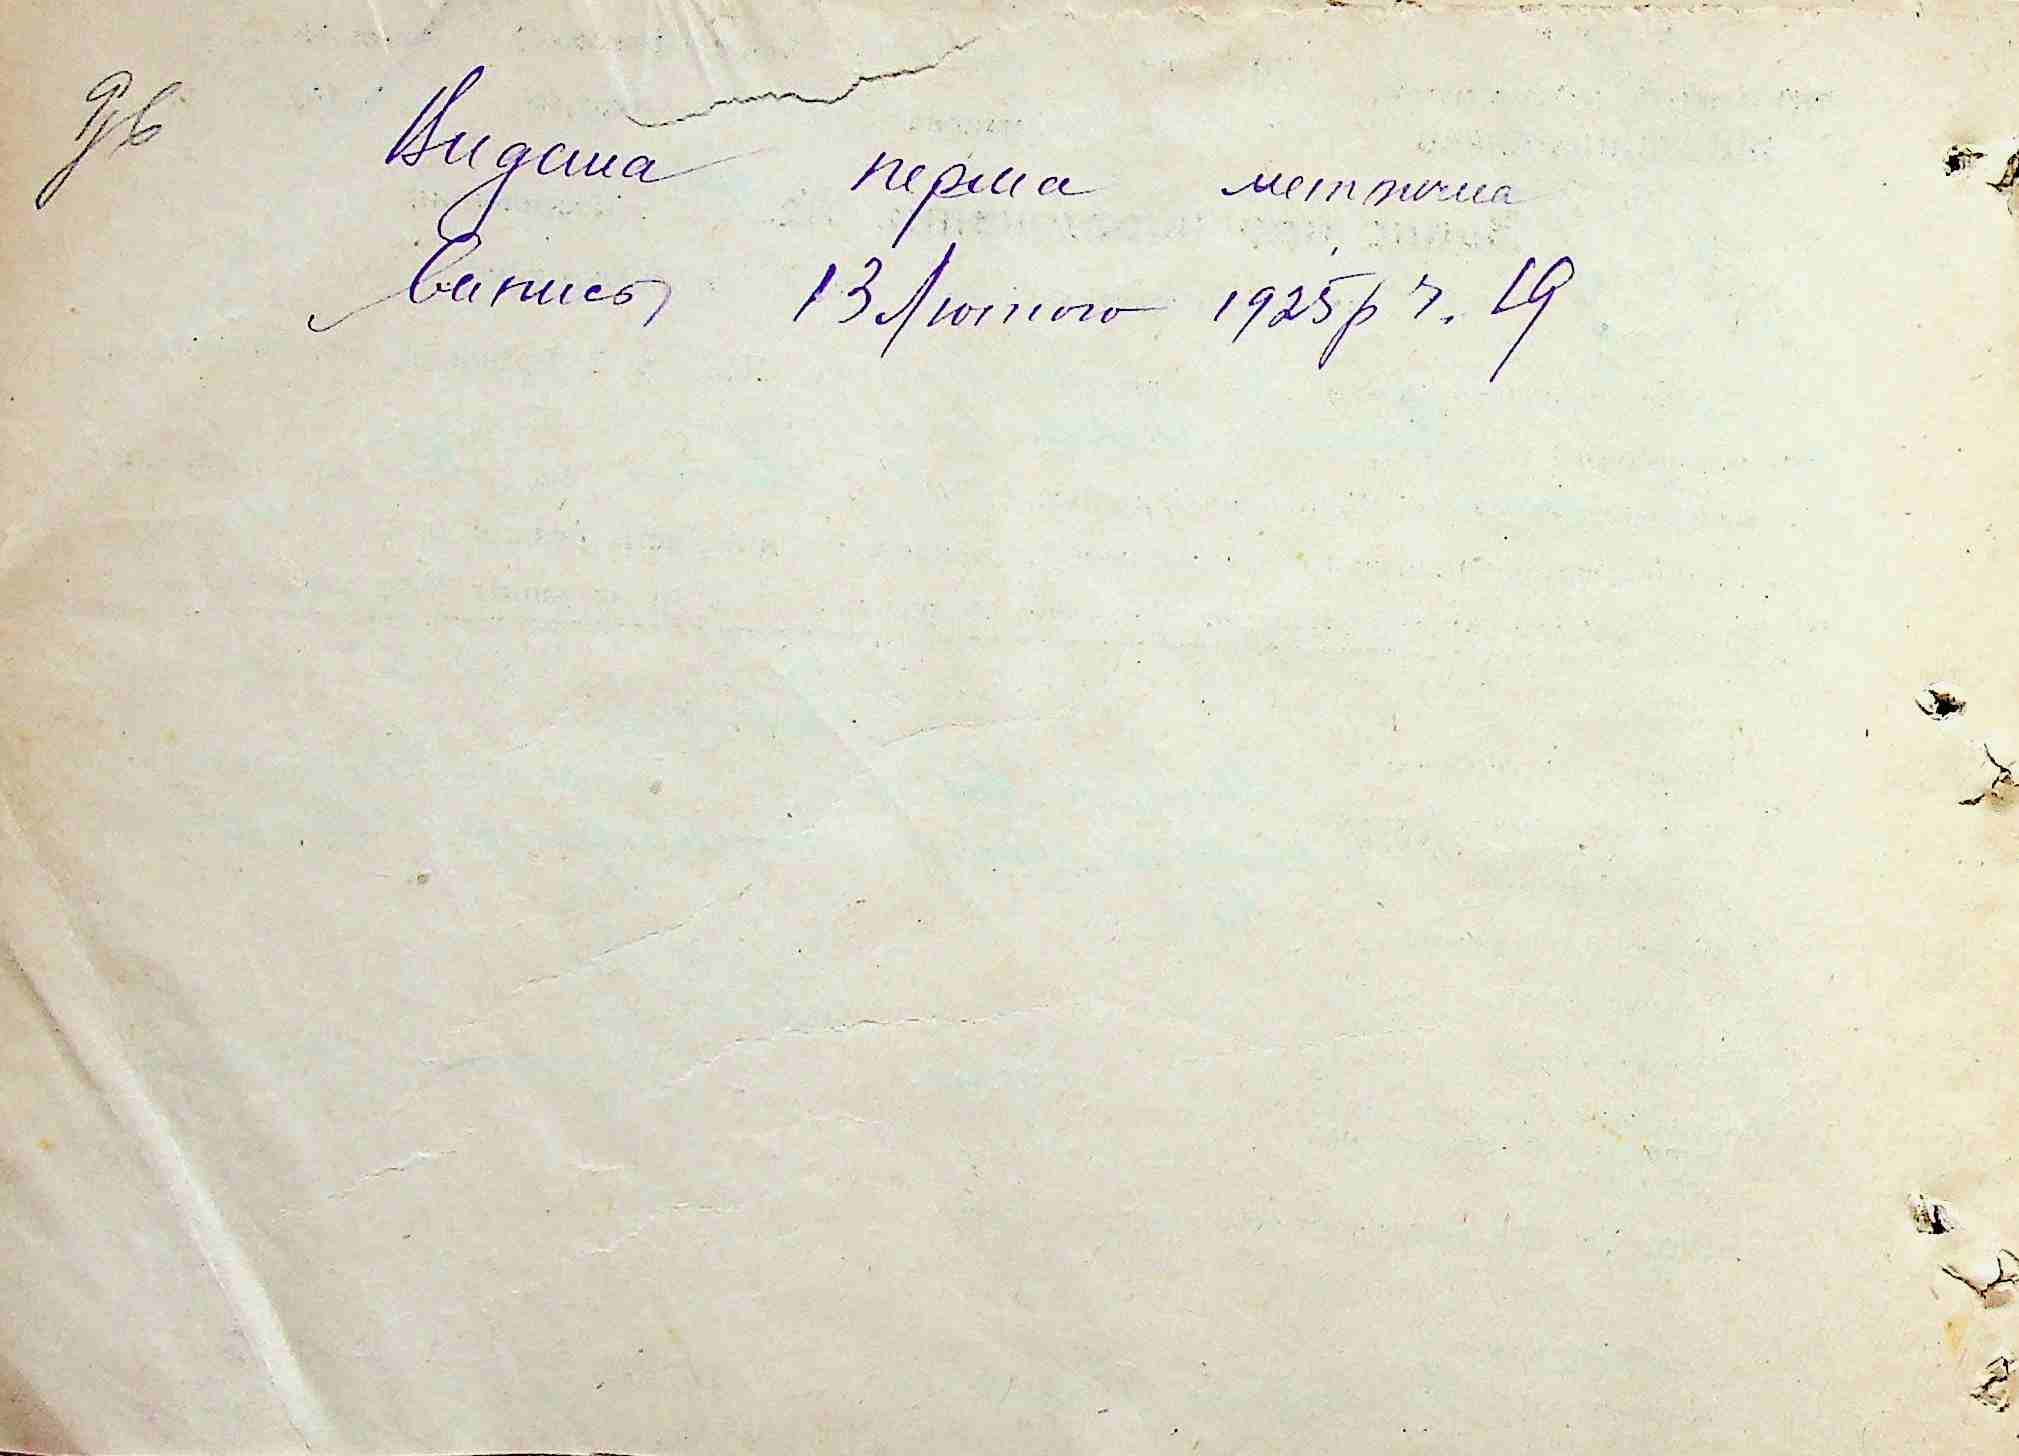 Видана перша метрична
випись 13 Лютого 1925 р ч. 19